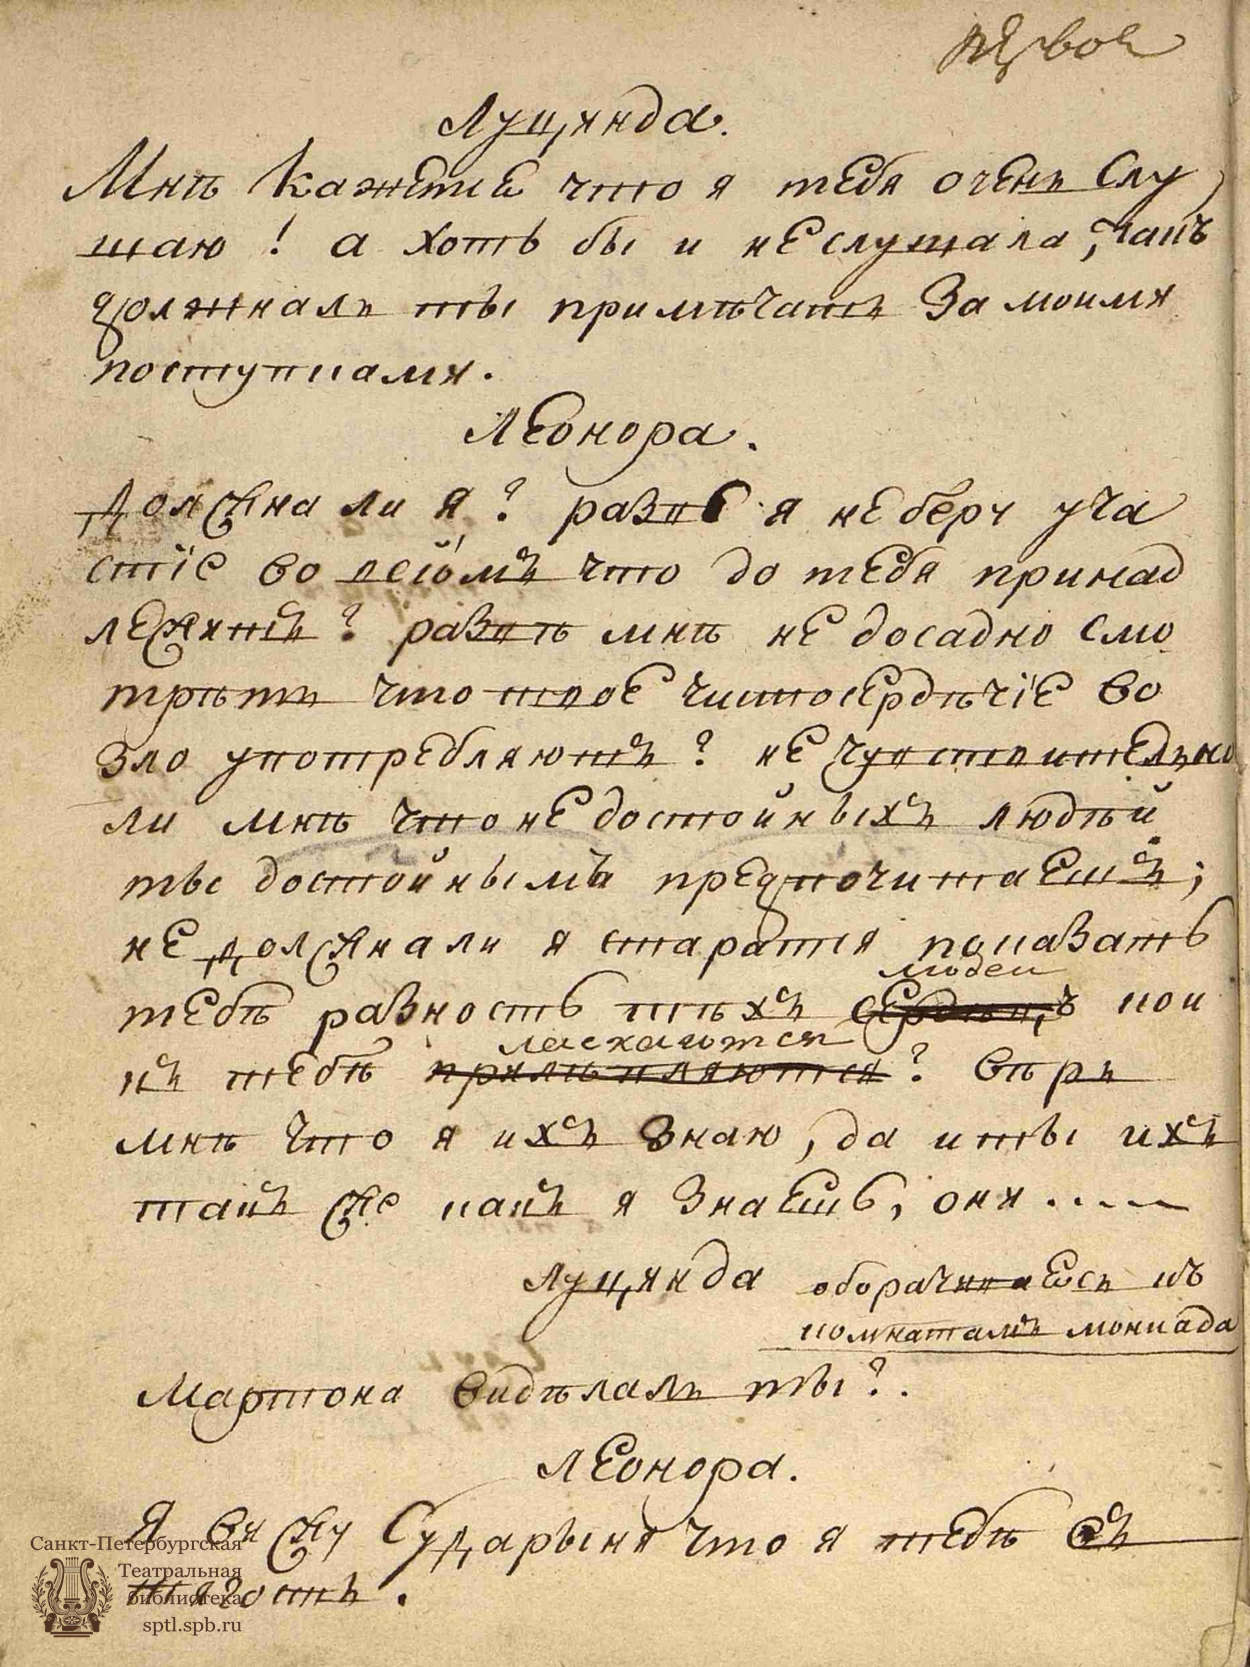 первое
Луцинда.
Мнѣ кажетце что я тебя очень слу
шаю! а хоть бы и не слушала, такъ
должналь ты примѣчать за моими
поступками.
Леонора.
Должна ли я? развѣ я не беру уча
стіе во всіомъ что до тебя принад
лежитъ? развѣ мнѣ не досадно смо
трѣть что твое чистосердѣчіе во
зло употребляютъ? не чувствительно
ли мнѣ что не достойныхъ людѣй
ты достойнымъ предпочитаешъ;
не должнали я старатся показать
людей
тебѣ разность тѣхъ сердецъ кои
ласкаются
къ тебѣ прилѣпляются? вѣрь
мнѣ что я ихъ знаю, да и ты ихъ
такъ же какъ я знаешь, они . . . .
Луцинда оборачиваясь къ
комнатамъ монкада
Мартона видѣлаль ты?.
Леонора.
Я вижу сударыня что я тебѣ въ
тягость.
Санкт-Петербургская
Театральная
библиотека
sptl.spb.ru